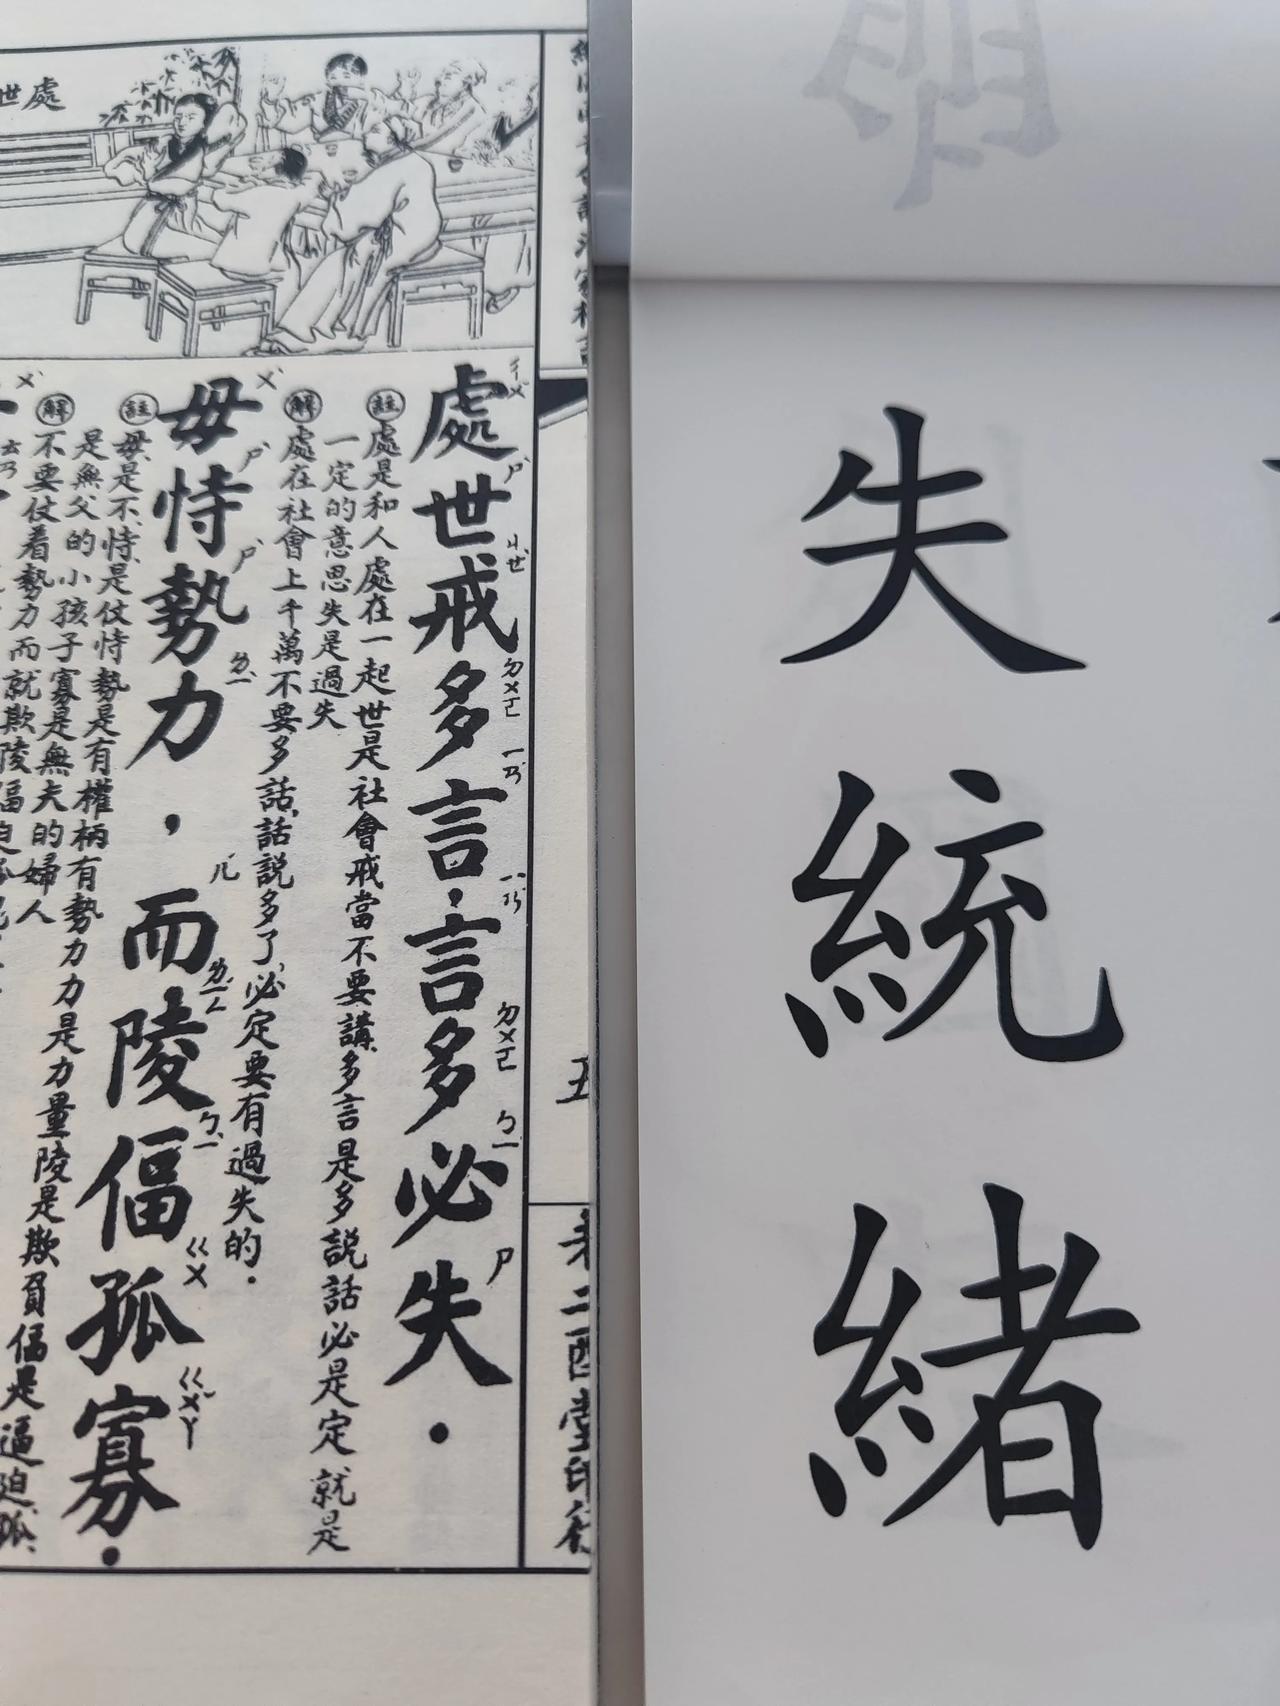 處世
處世戒多言，言多必失．
ㄔㄨˇ ㄕˋ ㄐㄧㄝˋ ㄉㄨㄛ ㄧㄢˊ ㄧㄢˊ ㄉㄨㄛ ㄅㄧˋ ㄕ
註 處是和人處在一起世是社會戒當不要講、多言是多説話必是定就是
一定的意思失是過失
解 處在社會上千萬不要多話、話説多了、必定要有過失的．
毋恃勢力，而陵偪孤寡．
ㄨˊ ㄕˋ ㄕˋ ㄌㄧˋ ㄦˊ ㄌㄧㄥˊ ㄅㄧ ㄍㄨ ㄍㄨㄚˇ
註 毋是不、恃是仗恃勢是有權柄有勢力力是力量陵是欺負偪是逼迫、孤
是無父的小孩子寡是無夫的婦人
解 不要仗着勢力而就欺陵偪迫
五
二酉堂印行
失統緒